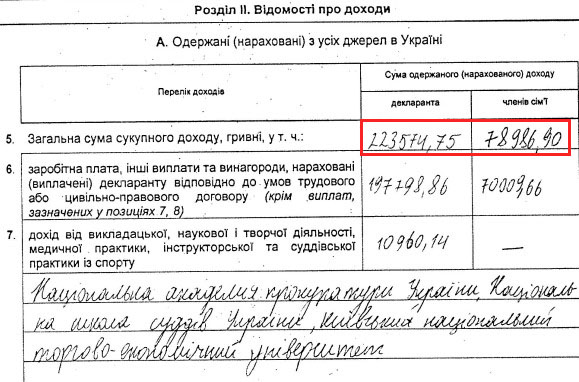 Розділ II. Відомості про доходи
А. Одержані (нараховані) з усіх джерел в Україні
Перелік доходів
Сума одержаного (нарахованого) доходу
декларанта
членів сім'ї
5. Загальна сума сукупного доходу, гривні, у т. ч.:
223574,75
78986,90
6. заробітна плата, інші виплати та винагороди, нараховані
(виплачені) декларанту відповідно до умов трудового
або цивільно-правового договору (крім виплат,
зазначених у позиціях 7, 8)
197798,86
70009,66
7. дохід від викладацької, наукової і творчої діяльності,
медичної практики, інструкторської та суддівської
практики із спорту
10960,14
—
Національна академія прокуратури України, Національ-
на школа суддів України, Київський національний
торгово-економічний університет